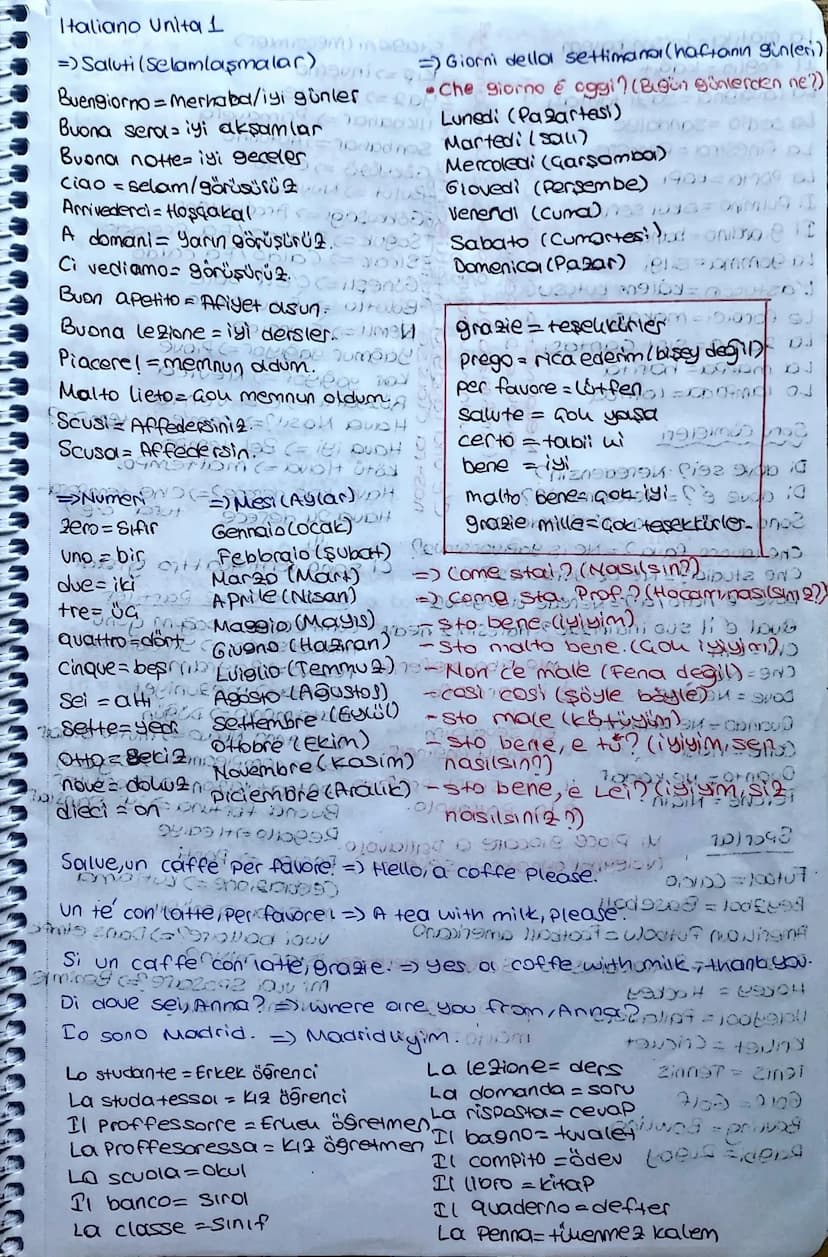 Italiano Unita 1
=> Saluti (Selamlaşmalar)
Buengiorno = Merhaba/iyi günler
Buona sera = iyi akşamlar
Buona notte = iyi geceler
Ciao = selam/görüşürüz
Arrivederci = Hoşçakal
A domani = Yarın görüşürüz.
Ci vediamo = görüşürüz.
Buon apetito = Afiyet olsun.
Buona lezione = iyi dersler.
Piacere! = memnun oldum.
Malto lieto = Çok memnun oldum.
Scusi = Affedersiniz
Scusa = Affedersin.
=> Giorni della settimana (haftanın günleri)
• Che giorno é oggi? (Bugün günlerden ne?)
Lunedi (Pazartesi)
Martedi (Salı)
Mercoledi (Çarşamba)
Giovedi (Perşembe)
Venerdi (Cuma)
Sabato (Cumartesi)
Domenica (Pazar)
grazie = teşekkürler
prego = rica ederim (bişey değil)
per favore = Lütfen
salute = çok yaşa
certo = tabii ki
bene = iyi
malto bene = çok iyi
grazie mille = çok teşekkürler
=> Numeri
zero = Sıfır
uno = bir
due = iki
tre = üç
quattro = dört
cinque = beş
Sei = altı
Sette = yedi
Otto = Sekiz
nove = dokuz
dieci = on
=> Mesi (Aylar)
Gennaio (Ocak)
Febbraio (Şubat)
Marzo (Mart)
Aprile (Nisan)
Maggio (Mayıs)
Giugno (Haziran)
Luiglio (Temmuz)
Agosto (Ağustos)
Settembre (Eylül)
Ottobre (Ekim)
Novembre (Kasım)
Diciembre (Aralık)
=> Come stai? (Nasılsın?)
=> Come sta Prof.? (Hocam nasılsınız?)
- Sto bene. (iyiyim)
- Sto malto bene. (Çok iyiyim)
- Non c'e male (Fena değil)
- cosi cosi (şöyle böyle)
- sto male (kötüyüm)
- sto bene, e tu? (iyiyim, sen
nasılsın?)
- sto bene, e Lei? (iyiyim, siz
nasılsınız?)
Salve, un caffe per favore! => Hello, a coffe please.
Un té con latte, per favore! => A tea with milk, please.
Si un caffe con latte, grazie. => yes a coffe with milk, thank you.
Di dove sei, Anna? => where are you from, Anna?
Io sono Madrid. => Madridliyim.
Lo studante = Erkek öğrenci
La studatessa = kız öğrenci
Il Proffessorre = Erkek öğretmen
La Proffesoressa = kız öğretmen
La scuola = Okul
Il banco = Sıra
La classe = sınıf
La lezione = ders
La domanda = soru
La risposta = cevap
Il bagno = tuvalet
Il compito = ödev
Il libro = kitap
Il quaderno = defter
La Penna = tükenmez kalem